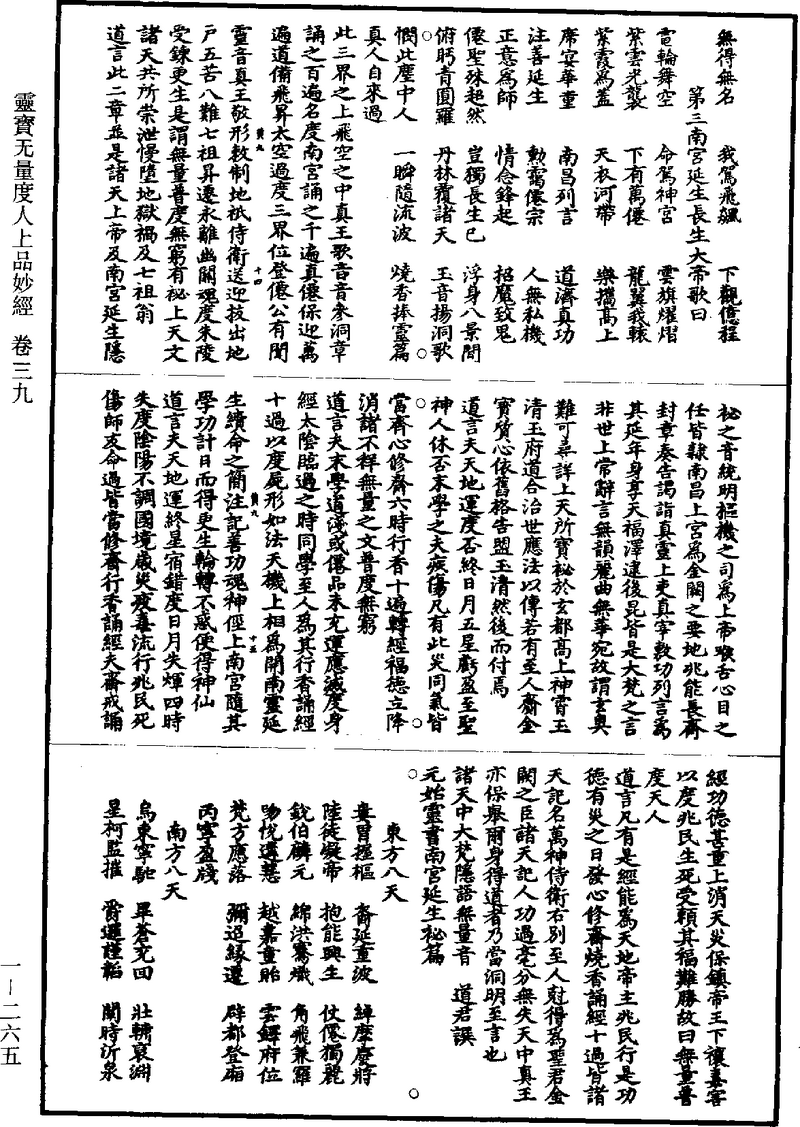 靈寶无量度人上品妙經 卷三九
一—二六五
無得無名 我駕飛飆 下觀億程
第三南宮延生長生大帝歌曰
雹輪舞空 命駕神宮 雲旗耀熠
紫雲光襲 下有萬僊 龍翼我轅
紫霞為蓋 天衣河帶 樂擕高上
席宴華童 南昌列言 道濟真功
注善延生 勲霭僊宗 人無私機
正意為師 情念鋒起 招魔致鬼
僊聖殊起然 豈獨長生已 浮身八景間
俯眄青圓羅 丹林覆諸天 玉音揚洞歌
憫此塵中人 一瞬隨流波 燒香捧靈篇
真人自來過
此三界之上飛空之中真王歌音音參洞章
誦之百遍名度南宮誦之千遍真僊保迎萬
遍道備飛昇太空過度三界位登僊公有聞
靈音真王敬形敕制地祇侍衛送迎拔出地
户五苦八難七祖昇遷永離幽關魂度朱陵
受鍊更生是謂無量普度無窮有祕上天文
諸天共所崇泄慢墮地獄禍及七祖翁
道言此二章並是諸天上帝及南宮延生隱
祕之音統明樞機之司為上帝喉舌心目之
任皆隸南昌上宮為金闕之要地兆能長齋
封章奏告謁詣真靈上吏真宰敕功列言為
其延年身享天福澤逮後昆皆是大梵之言
非世上常辭言無韻麗曲無華宛故謂玄奧
難可尋詳上天所寶祕於玄都髙上神霄玉
清玉府道合治世應法以傳若有至人齎金
寶質心依舊格告盟玉清然後而付焉
道言夫天地運度否終日月五星虧盈至聖
神人休否末學之夫疾傷凡有此災同氣皆
當齋心修齋六時行香十遍轉經福德立降
消諸不祥無量之文普度無窮
道言夫末學道淺或僊品未充運應滅度身
經太陰臨過之時同學至人為其行香誦經
十過以度屍形如法天機上相為開南靈延
生續命之簡注記善功魂神徑上南宮隨其
學功計日而得更生輪轉不惑便得神仙
道言夫天地運終星宿錯度日月失煇四時
失度陰陽不調國境嵗災疫毒流行兆民死
傷師友命過皆當修齋行香誦經夫齋戒誦
經功德甚重上消天災保鎮帝王下禳毒害
以度兆民生死受賴其福難勝故曰無量普
度天人
道言凡有是經能為天地帝主兆民行是功
德有災之日發心修齋燒香誦經十過皆諸
天記名萬神侍衛右别至人尅得為聖君金
闕之臣諸天記人功過毫分無失天中真王
亦保舉爾身得道者乃當洞明至言也
諸天中大梵隱語無量音 道君譔
元始靈書南宮延生祕篇
東方八天
婁冐握樞 裔延重波 綽摩慶將
陸徒凝帝 抱能興生 仗僊獨麗
銳伯麟元 綿洪騫熾 角飛兼羅
吻恱選慧 越嘉重貽 雲鐸府位
梵方應落 彌迢緣遷 辟都登廂
丙寧盈牋
南方八天
烏東寧馳 畢蒼充回 壯轎裒淵
星柯監摧 爵邏謹韜 闡時沂泉